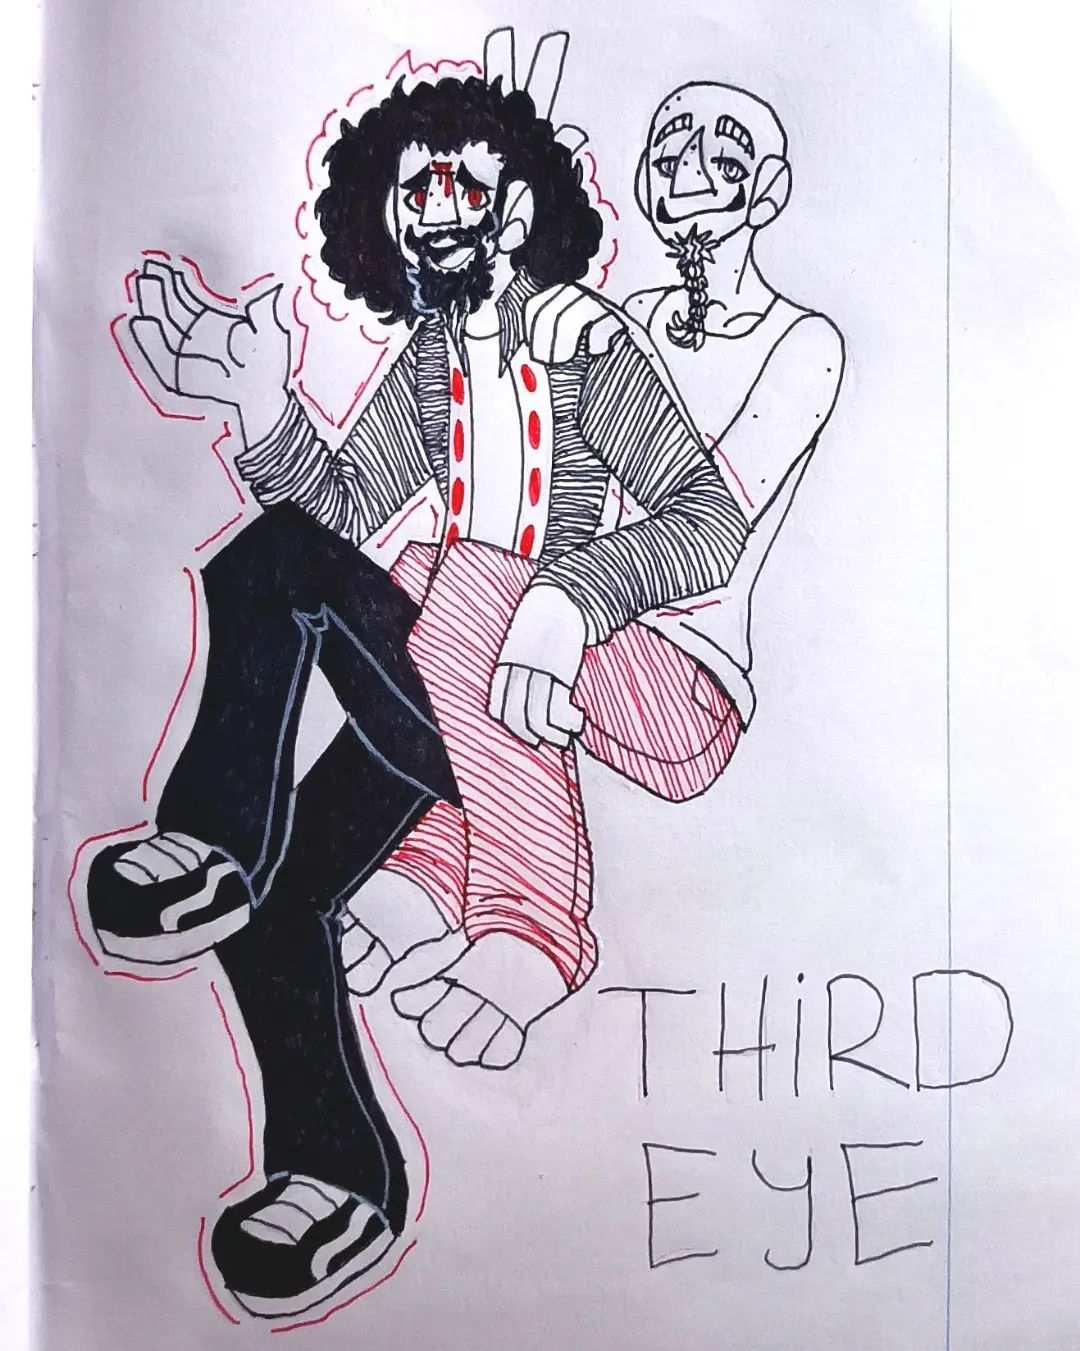 THiRD
EYE